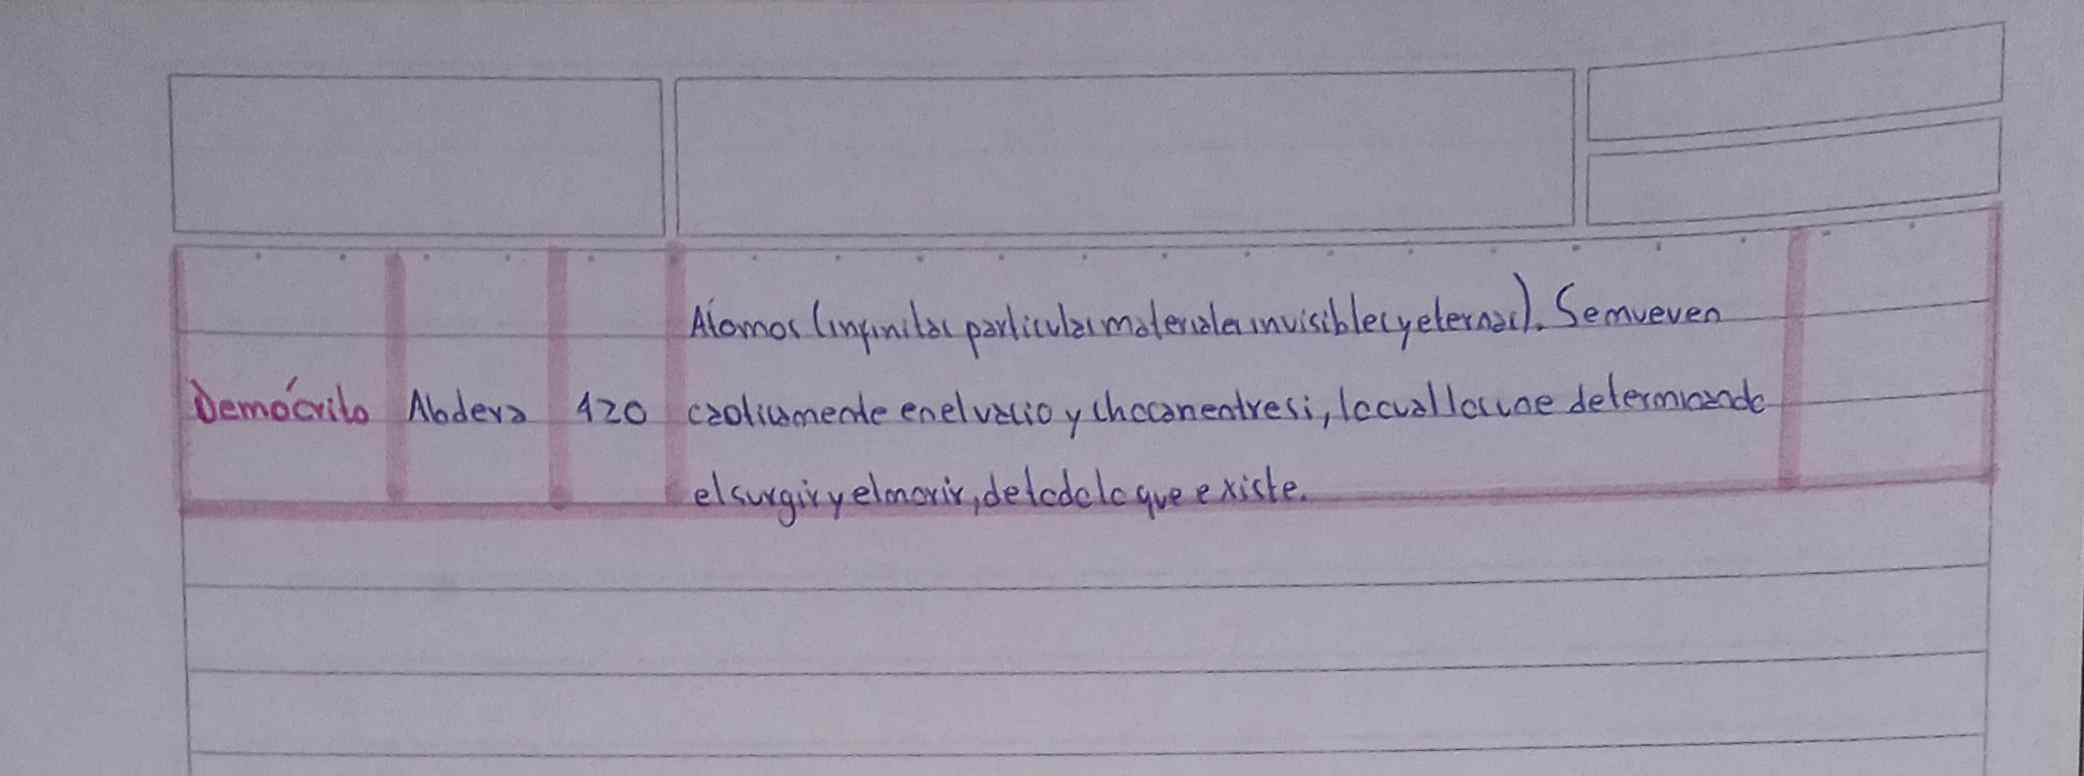 Átomos (infinitas particulas materiales invisibles y eternas). Se mueven
Demócrito Abdera 420 caoticamente en el vacio y chocan entre si, lo cual los une determinando
el surgir y el morir, de todo lo que existe.